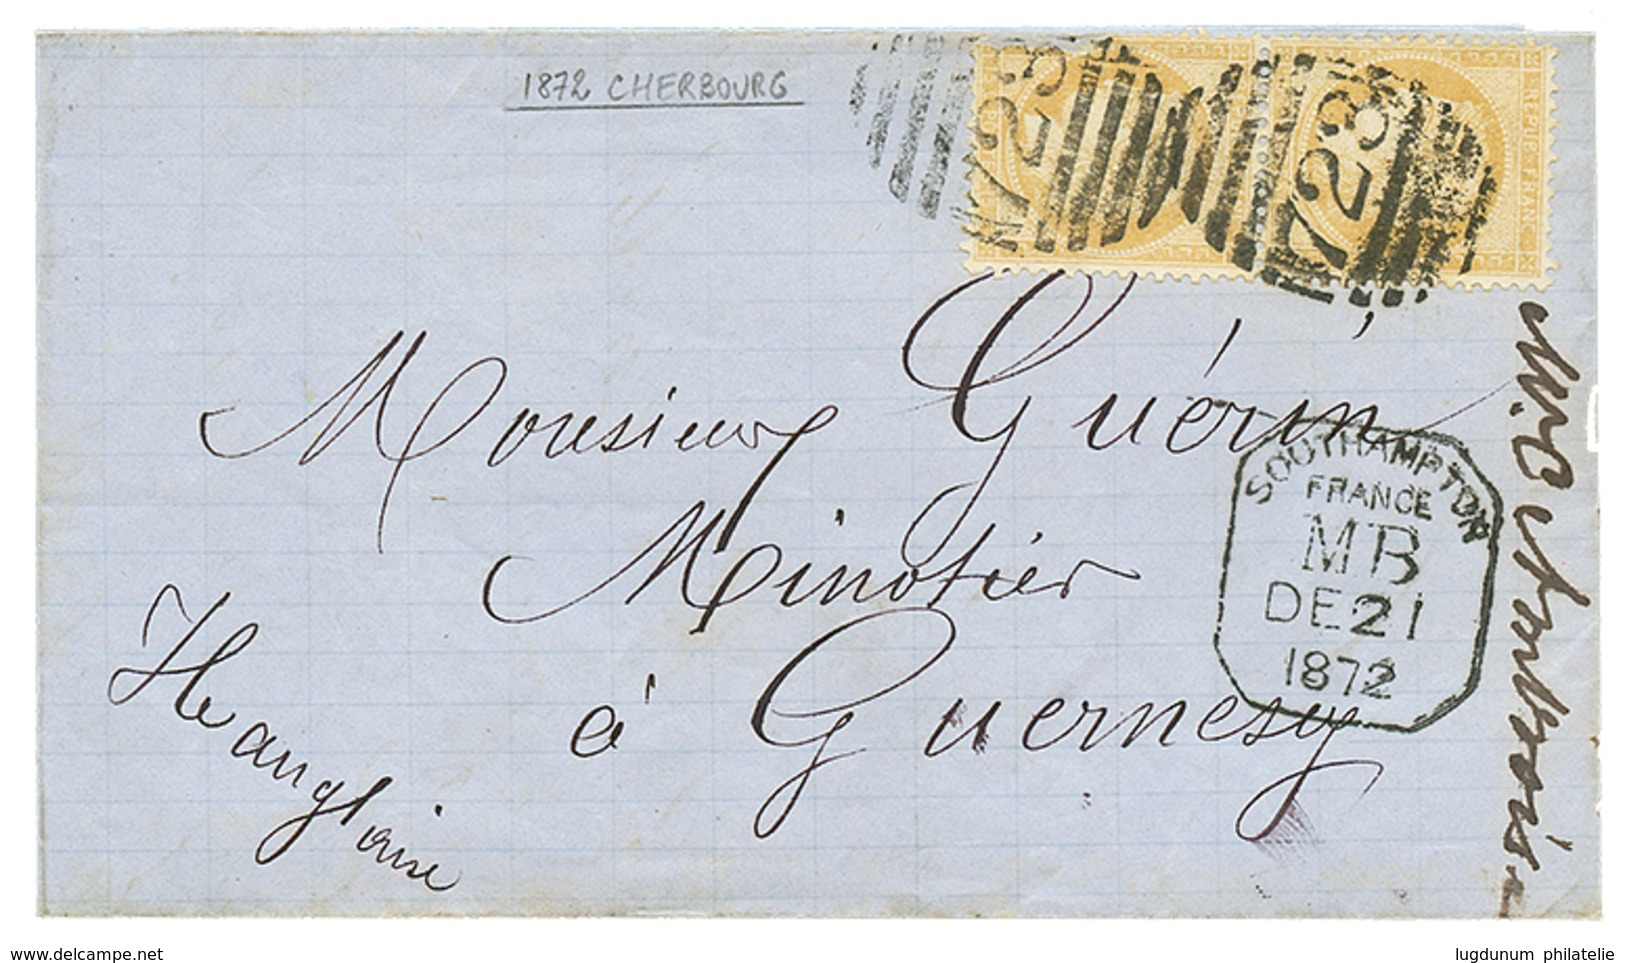 1872 CHERBOURG
723
723
REPUB. FRANC.
Monsieur Guérin
Minotier
à Guernesy
Ile anglaise
SOUTHAMPTON
FRANCE
MB
DE 21
1872
www.delcampe.net
lugdunum philatelie